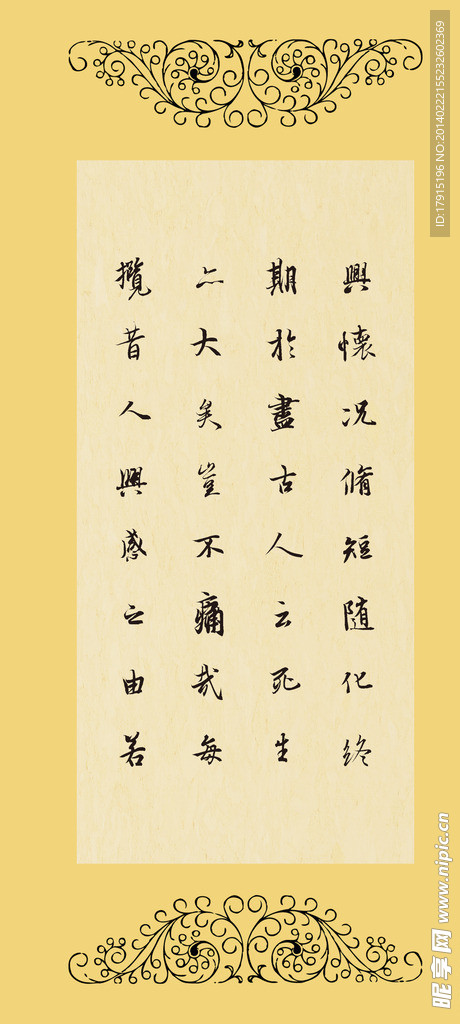 興懷況脩短随化終
期於盡古人云死生
亦大矣豈不痛哉每
攬昔人興感之由若
ID:17915196 NO:20140222155232602369
昵享网 www.nipic.cn